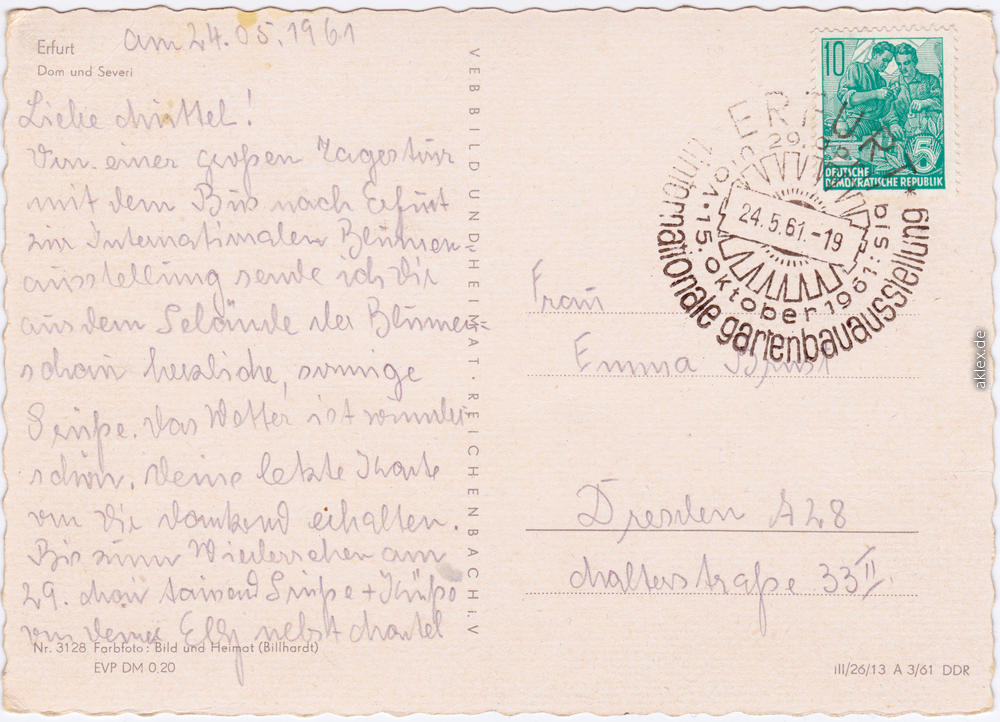 Erfurt
Dom und Severi
am 24.05.1961
Liebe Muttel!
Von einer großen Tagestour
mit dem Bus nach Erfurt
zur Internationalen Blumen-
ausstellung sende ich Dir
aus dem Gelände der Blumen-
schau herzliche, sonnige
Grüße. Das Wetter ist wunder
schön. Deine letzte Karte
von Dir dankend erhalten.
Bis zum Wiedersehen am
29. Mai tausend Grüße + Küße
von Deiner Elly nebst
Nr. 3128 Farbfoto: Bild und Heimat (Billhardt)
EVP DM 0,20
VEB BILD UND HEIMAT · REICHENBACH I. V
10
5
DEUTSCHE
DEMOKRATISCHE REPUBLIK
ERFURT
24.5.61.-19
bis: 15. Oktober 1961
internationale gartenbauausstellung
Frau
Emma
Dresden A28
Malterstraße 33 II
III/26/13 A 3/61 DDR
aklex.de